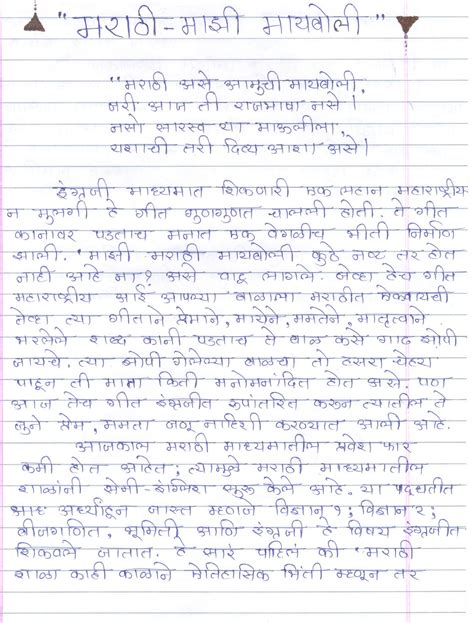 "मराठी - माझी मायबोली"
"मराठी असे आमुची मायबोली,
जरी आज ती राजभाषा नसे।
नसो सारस्व या माऊलीला,
यशाची तरी दिव्य आशा असे।
इंग्रजी माध्यमात शिकणारी एक लहान महाराष्ट्रीय
न मुलगी हे गीत गुणगुणत चालली होती. ते गीत
कानावर पडताच मनात एक वेगळीच भीती निर्माण
झाली. 'माझी मराठी मायबोली कुठे नष्ट तर होत
नाही आहे ना? असे वाटू लागले. जेव्हा हेच गीत
महाराष्ट्रीय आई आपल्या बाळाला मराठीत ऐकवायची
तेव्हा त्या गीताने प्रेमाने, मायेने, ममतेने, मातृत्वाने
भरलेले शब्द कानी पडताच ते बाळ कसे गाढ झोपी
जायचे. त्या झोपी गेलेल्या बाळाचा तो हसरा चेहरा
पाहून ती माता किती मनोमनांदित होत असे. पण
आज तेच गीत इंग्रजीत रूपांतरित करून त्यातील ते
जुने प्रेम, ममता जणू नाहिशी करण्यात आली आहे.
आजकाल मराठी माध्यमातील प्रवेश फार
कमी होत आहेत; त्यामुळे मराठी माध्यमातील
शाळांनी सेमी-इंग्लिश सुरू केले आहे. या पद्धतीत
अर्ध्याहून जास्त म्हणजे विज्ञान १; विज्ञान २;
बीजगणित, भूमिती आणि इंग्रजी हे विषय इंग्रजीत
शिकवले जातात. हे सारे पाहिलं की 'मराठी
शाळा काही काळाने ऐतिहासिक भिंती म्हणून तर